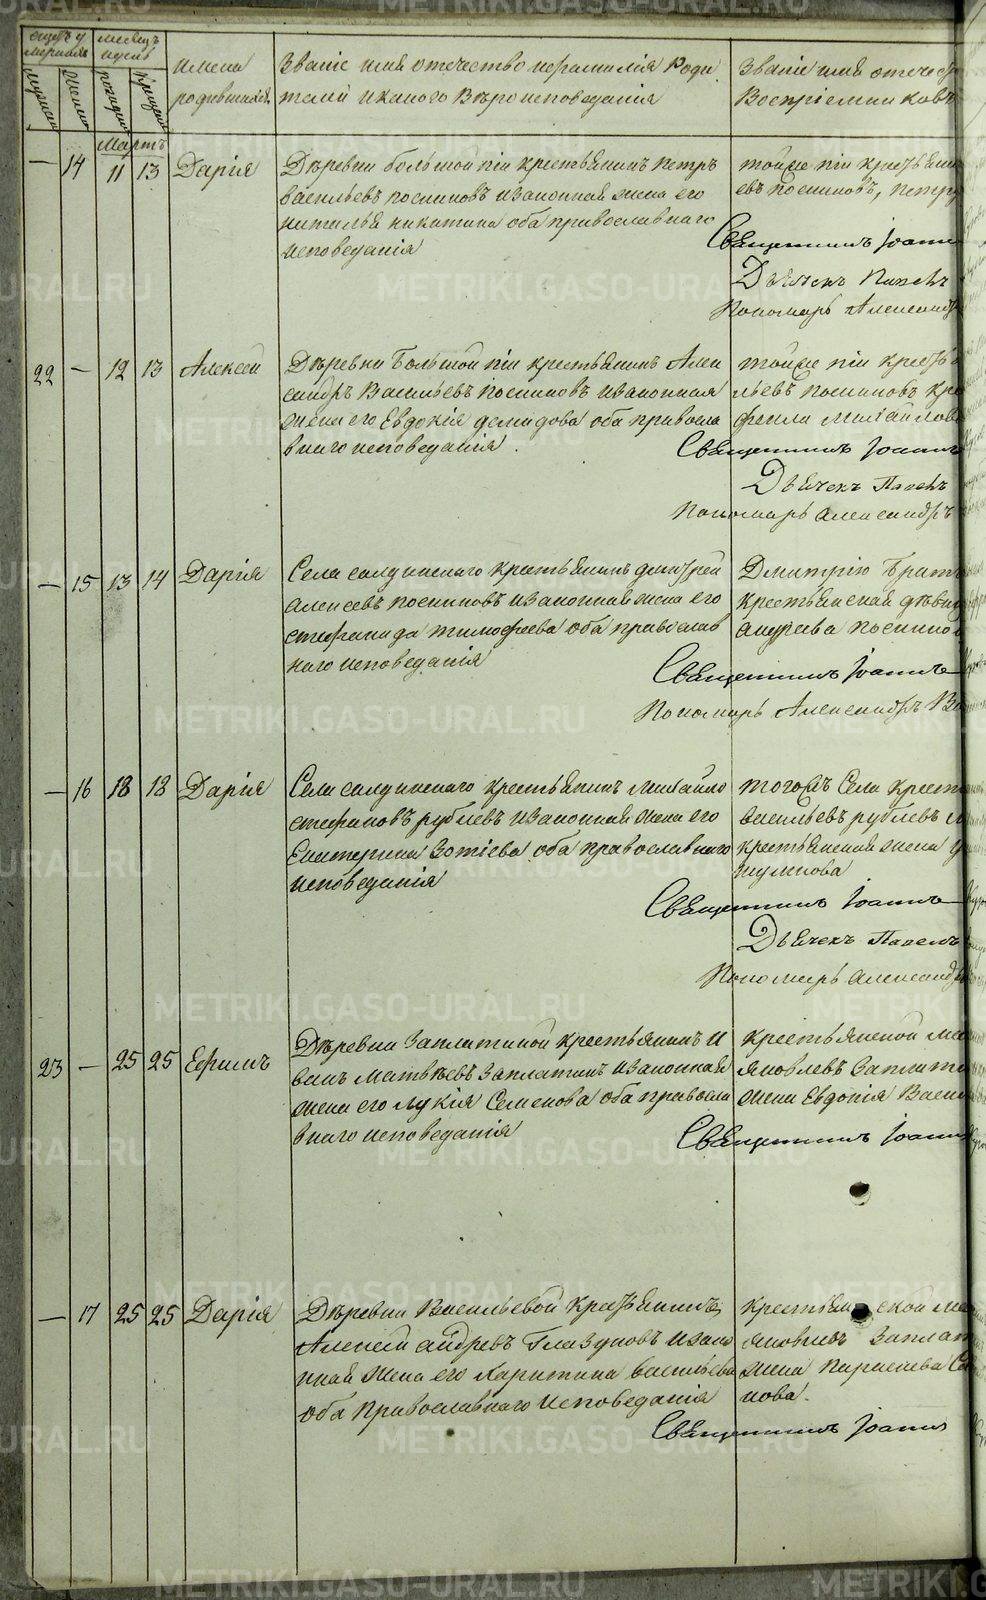 Счетъ у мершихъ
месецъ и день
Имена родившихся
Званіе имя отечество и фамилія Роди
телей и какого Вѣроисповедания
Званіе имя отечес
Воспріемни ковъ
Мартъ
— 14 11 13 Дарія
Дѣревни большой піи крестьянинъ петръ
васильевъ поспиловъ и законная жена его
наталья никитина оба православнаго
исповеданія
тойже піи крестьяни
евъ поспиловъ, петру
Священникъ Іоанн
Дьячекъ Павелъ
Пономарь Александръ
22 — 12 13 Алексей
Дѣревни Большой піи крестьянинъ Алек
сандръ Васильевъ поспиловъ и законная
жена его Евдокія демидова оба правосла
внаго исповеданія.
тойже піи крестья
льевъ поспиловъ кре
Михайлов
Священникъ Іоаннъ
Дьячекъ Павелъ
Пономарь Александръ
— 15 13 14 Дарія
Села салдинскаго крестьянинъ дмитрей
алексеевъ поспиловъ и законная жена его
стефанида тимофеева оба православ
наго исповеданія
Дмитрію Братъ
крестьянская дѣвиц
андреева поспило
Священникъ Іоаннъ
Пономарь Александръ
— 16 18 18 Дарія
Села салдинскаго крестьянинъ Михайло
стефановъ рублевъ и законная жена его
Екатерина Зотіева оба православнаго
исповеданія
тогожъ Села кресть
васильевъ рублевъ
крестьянская жена
Священникъ Іоаннъ
Дьячекъ Павелъ
Пономарь Александръ
23 — 25 25 Ефимъ
Дѣревни Заплатиной крестьянинъ И
ванъ Матвѣевъ Заплатинъ и законная
жена его Лукія Семенова оба правосла
внаго исповеданія
крестьянской ма
Яковлевъ Заплати
жена Евдокія Васи
Священникъ Іоанн
— 17 25 25 Дарія
Дѣревни Васильевой крестьянинъ
Алексей андревъ Глазуновъ и зако
нная жена его Харитина васильева
оба Православнаго исповеданія
крестьян ской ма
яковлевъ Заплат
жена параскева Се
нова.
Священникъ Іоанн
METRIKI.GASO-URAL.RU